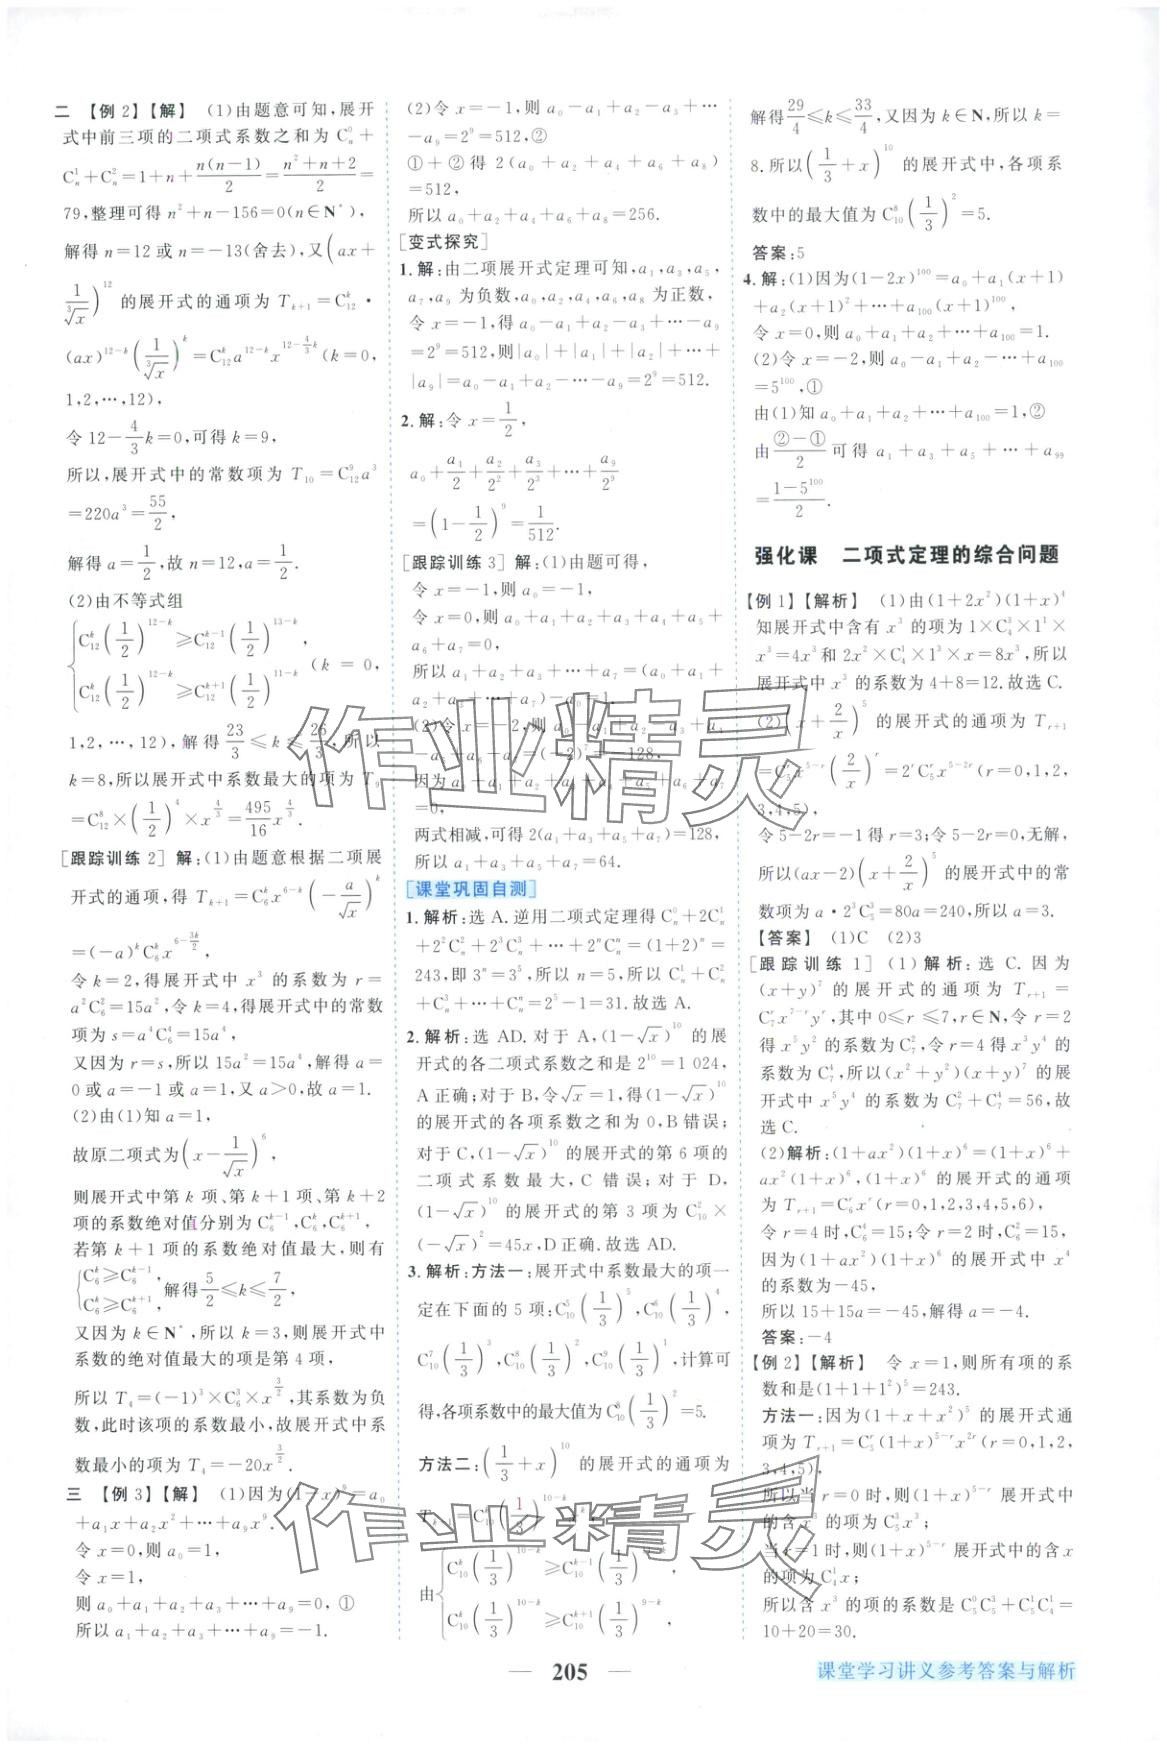 二 【例 2】【解】 (1)由题意可知,展开
式中前三项的二项式系数之和为 C_n^0+
C_n^1+C_n^2=1+n+\frac{n(n-1)}{2}=\frac{n^2+n+2}{2}=
79,整理可得 n^2+n-156=0(n∈N^*),
解得 n=12 或 n=-13(舍去),又(ax+
\frac{1}{\sqrt[3]{x}})^{12} 的展开式的通项为 T_{k+1}=C_{12}^k·
(ax)^{12-k}(\frac{1}{\sqrt[3]{x}})^k=C_{12}^k a^{12-k}x^{12-\frac{4}{3}k}(k=0,
1,2,…,12),
令 12-\frac{4}{3}k=0,可得 k=9,
所以,展开式中的常数项为 T_{10}=C_{12}^9a^3
=220a^3=\frac{55}{2},
解得 a=\frac{1}{2},故 n=12,a=\frac{1}{2}.
(2)由不等式组
{C_{12}^k(\frac{1}{2})^{12-k}≥C_{12}^{k-1}(\frac{1}{2})^{13-k},
C_{12}^k(\frac{1}{2})^{12-k}≥C_{12}^{k+1}(\frac{1}{2})^{11-k} (k=0,
1,2,…,12),解得\frac{23}{3}≤k≤\frac{26}{3},所以
k=8,所以展开式中系数最大的项为 T_9
=C_{12}^8×(\frac{1}{2})^4×x^{\frac{4}{3}}=\frac{495}{16}x^{\frac{4}{3}}.
[跟踪训练 2] 解:(1)由题意根据二项展
开式的通项,得 T_{k+1}=C_6^k x^{6-k}(-\frac{a}{\sqrt{x}})^k
=(-a)^kC_6^kx^{6-\frac{3k}{2}},
令 k=2,得展开式中 x^3 的系数为 r=
a^2C_6^2=15a^2,令 k=4,得展开式中的常数
项为 s=a^4C_6^4=15a^4,
又因为 r=s,所以 15a^2=15a^4,解得 a=
0 或 a=-1 或 a=1,又 a>0,故 a=1.
(2)由(1)知 a=1,
故原二项式为(x-\frac{1}{\sqrt{x}})^6,
则展开式中第 k 项、第 k+1 项、第 k+2
项的系数绝对值分别为 C_6^{k-1},C_6^k,C_6^{k+1},
若第 k+1 项的系数绝对值最大,则有
{C_6^k≥C_6^{k-1},
C_6^k≥C_6^{k+1}, 解得\frac{5}{2}≤k≤\frac{7}{2},
又因为 k∈N^*,所以 k=3,则展开式中
系数的绝对值最大的项是第 4 项,
所以 T_4=(-1)^3×C_6^3×x^{\frac{3}{2}},其系数为负
数,此时该项的系数最小,故展开式中系
数最小的项为 T_4=-20x^{\frac{3}{2}}.
三 【例 3】【解】 (1)因为(1-x)^9=a_0
+a_1x+a_2x^2+…+a_9x^9.
令 x=0,则 a_0=1,
令 x=1,
则 a_0+a_1+a_2+a_3+…+a_9=0, ①
所以 a_1+a_2+a_3+…+a_9=-1.
(2)令 x=-1,则 a_0-a_1+a_2-a_3+…
-a_9=2^9=512,②
①+②得 2(a_0+a_2+a_4+a_6+a_8)
=512,
所以 a_0+a_2+a_4+a_6+a_8=256.
[变式探究]
1.解:由二项展开式定理可知,a_1,a_3,a_5,
a_7,a_9 为负数,a_0,a_2,a_4,a_6,a_8 为正数,
令 x=-1,得 a_0-a_1+a_2-a_3+…-a_9
=2^9=512,所以|a_0|+|a_1|+|a_2|+…+
|a_9|=a_0-a_1+a_2-…-a_9=2^9=512.
2.解:令 x=\frac{1}{2},
a_0+\frac{a_1}{2}+\frac{a_2}{2^2}+\frac{a_3}{2^3}+…+\frac{a_9}{2^9}
=(1-\frac{1}{2})^9=\frac{1}{512}.
[跟踪训练 3] 解:(1)由题可得,
令 x=-1,则 a_0=-1,
令 x=0,则 a_0+a_1+a_2+a_3+a_4+a_5+
a_6+a_7=0,
所以 a_1+a_2+a_3+…+a_7=(a_0+a_1+
a_2+a_3+…+a_7)-a_0=1.
(2)令 x=-2,则 a_0-a_1+a_2-a_3+a_4
-a_5+a_6-a_7=(-2)^7=-128,
因为 a_0+a_1+a_2+a_3+a_4+a_5+a_6+a_7
=0,
两式相减,可得 2(a_1+a_3+a_5+a_7)=128,
所以 a_1+a_3+a_5+a_7=64.
[课堂巩固自测]
1.解析:选 A.逆用二项式定理得 C_n^0+2C_n^1
+2^2C_n^2+2^3C_n^3+…+2^nC_n^n=(1+2)^n=
243,即 3^n=3^5,所以 n=5,所以 C_n^1+C_n^2
+C_n^3+…+C_n^n=2^5-1=31.故选 A.
2.解析:选 AD.对于 A,(1-\sqrt{x})^{10} 的展
开式的各二项式系数之和是 2^{10}=1 024,
A 正确;对于 B,令\sqrt{x}=1,得(1-\sqrt{x})^{10}
的展开式的各项系数之和为 0,B 错误;
对于 C,(1-\sqrt{x})^{10} 的展开式的第 6 项的
二项式系数最大,C 错误;对于 D,
(1-\sqrt{x})^{10} 的展开式的第 3 项为 C_{10}^2×
(-\sqrt{x})^2=45x,D 正确.故选 AD.
3.解析:方法一:展开式中系数最大的项一
定在下面的 5 项:C_{10}^5(\frac{1}{3})^5,C_{10}^6(\frac{1}{3})^4,
C_{10}^7(\frac{1}{3})^3,C_{10}^8(\frac{1}{3})^2,C_{10}^9(\frac{1}{3})^1,计算可
得,各项系数中的最大值为C_{10}^8(\frac{1}{3})^2=5.
方法二:(\frac{1}{3}+x)^{10} 的展开式的通项为
T_{k+1}=C_{10}^k(\frac{1}{3})^{10-k}x^k,
由{C_{10}^k(\frac{1}{3})^{10-k}≥C_{10}^{k-1}(\frac{1}{3})^{11-k},
C_{10}^k(\frac{1}{3})^{10-k}≥C_{10}^{k+1}(\frac{1}{3})^{9-k},
解得\frac{29}{4}≤k≤\frac{33}{4},又因为 k∈N,所以 k=
8.所以(\frac{1}{3}+x)^{10} 的展开式中,各项系
数中的最大值为 C_{10}^8(\frac{1}{3})^2=5.
答案:5
4.解:(1)因为(1-2x)^{100}=a_0+a_1(x+1)
+a_2(x+1)^2+…+a_{100}(x+1)^{100},
令 x=0,所以 a_0+a_1+a_2+…+a_{100}=1.
(2)令 x=-2,则 a_0-a_1+a_2-…+a_{100}
=5^{100},①
由(1)知 a_0+a_1+a_2+…+a_{100}=1,②
由\frac{②-①}{2}可得 a_1+a_3+a_5+…+a_{99}
=\frac{1-5^{100}}{2}.
强化课 二项式定理的综合问题
【例 1】【解析】 (1)由(1+2x^2)(1+x)^4
知展开式中含有 x^3 的项为 1×C_4^3×1^1×
x^3=4x^3 和 2x^2×C_4^1×1^3×x=8x^3,所以
展开式中 x^3 的系数为 4+8=12.故选 C.
(2)(x+\frac{2}{x})^5 的展开式的通项为 T_{r+1}
=C_5^rx^{5-r}(\frac{2}{x})^r=2^rC_5^rx^{5-2r}(r=0,1,2,
3,4,5),
令 5-2r=-1 得 r=3;令 5-2r=0,无解,
所以(ax-2)(x+\frac{2}{x})^5 的展开式中的常
数项为 a·2^3C_5^3=80a=240,所以 a=3.
【答案】 (1)C (2)3
[跟踪训练 1] (1)解析:选 C.因为
(x+y)^7 的展开式的通项为 T_{r+1}=
C_7^rx^{7-r}y^r,其中 0≤r≤7,r∈N,令 r=2
得 x^5y^2 的系数为 C_7^2,令 r=4 得 x^3y^4 的
系数为 C_7^4,所以(x^2+y^2)(x+y)^7 的展
开式中 x^5y^4 的系数为 C_7^2+C_7^4=56,故
选 C.
(2)解析:(1+ax^2)(1+x)^6=(1+x)^6+
ax^2(1+x)^6,(1+x)^6 的展开式的通项
为 T_{r+1}=C_6^rx^r(r=0,1,2,3,4,5,6),
令 r=4 时,C_6^4=15;令 r=2 时,C_6^2=15,
因为(1+ax^2)(1+x)^6 的展开式中 x^4
的系数为-45,
所以 15+15a=-45,解得 a=-4.
答案:-4
【例 2】【解析】 令 x=1,则所有项的系
数和是(1+1+1^2)^5=243.
方法一:因为(1+x+x^2)^5 的展开式通
项为 T_{r+1}=C_5^r(1+x)^{5-r}x^{2r}(r=0,1,2,
3,4,5),
所以当 r=0 时,则(1+x)^{5-r} 展开式中
的含 x^3 的项为 C_5^3x^3;
当 r=1 时,则(1+x)^{5-r} 展开式中的含 x
的项为 C_4^1x;
所以含 x^3 的项的系数是 C_5^0C_5^3+C_5^1C_4^1=
10+20=30.
— 205 —
课堂学习讲义参考答案与解析
作业精灵
作业精灵